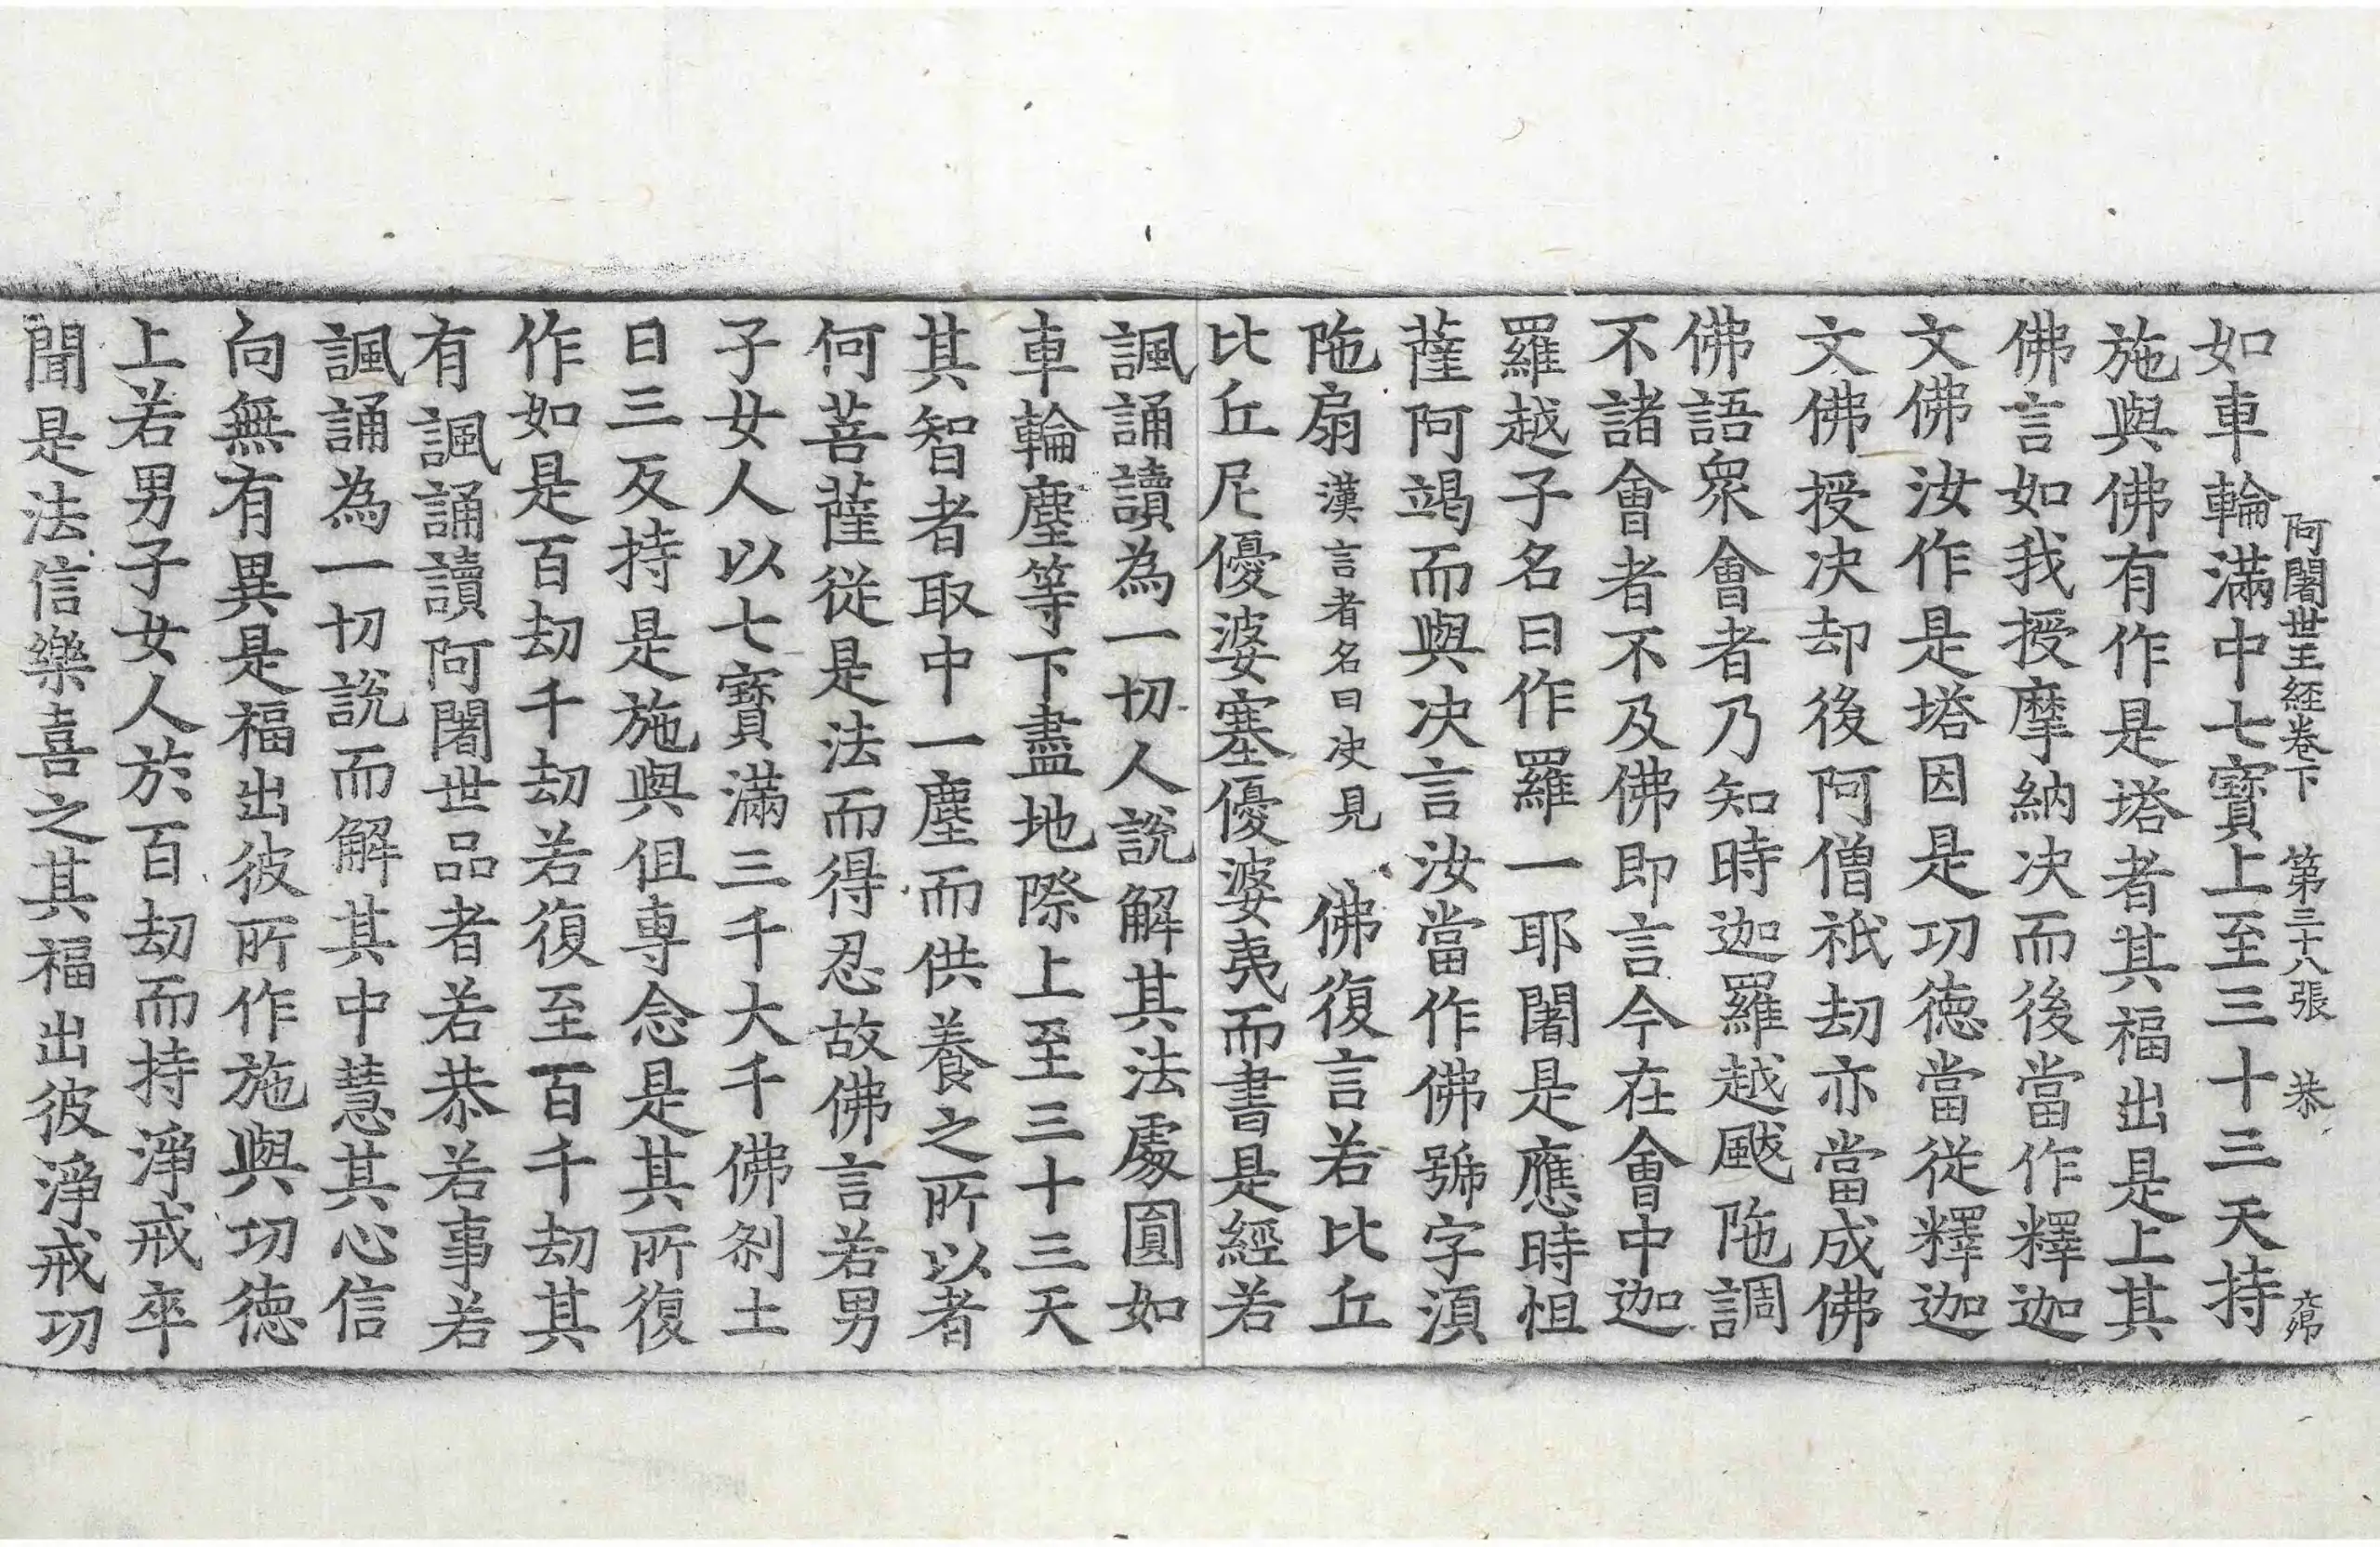 阿闍世王経卷下　第三十八張　恭
如車輪滿中七寳上至三十三天持
施與佛有作是塔者其福出是上其
佛言如我授摩納决而後當作釋迦
文佛汝作是塔因是功徳當従釋迦
文佛授决却後阿僧祇劫亦當成佛
佛語衆會者乃知時迦羅越颰陁調
不諸會者不及佛即言今在會中迦
羅越子名曰作羅一耶闍是應時怛
薩阿竭而與决言汝當作佛號字湏
陁扇漢言者名曰决見　佛復言若比丘
比丘尼優婆塞優婆夷而書是經若
諷誦讀為一切人說解其法處圎如
車輪塵等下盡地際上至三十三天
其智者取中一塵而供養之所以者
何菩薩従是法而得忍故佛言若男
子女人以七寳滿三千大千佛刹土
日三反持是施與佀専念是其所復
作如是百劫千劫若復至百千劫其
有諷誦讀阿闍世品者若恭若事若
諷誦為一切說而解其中慧其心信
向無有異是福出彼所作施與功徳
上若男子女人於百劫而持淨戒卒
聞是法信樂喜之其福出彼淨戒功